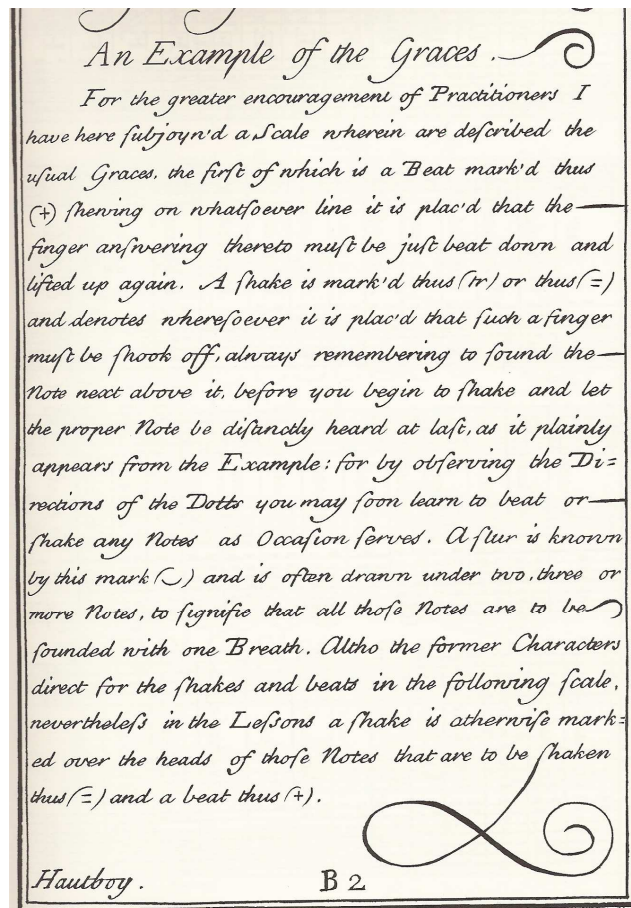 An Example of the Graces.
For the greater encouragement of Practitioners I
have here ſubjoyn'd a Scale wherein are deſcribed the
uſual Graces, the firſt of which is a Beat mark'd thus
(+) ſhewing on whatſoever line it is plac'd that the
finger anſwering thereto muſt be juſt beat down and
lifted up again. A ſhake is mark'd thus (tr) or thus (=)
and denotes whereſoever it is plac'd that ſuch a finger
muſt be ſhook off, always remembering to ſound the
Note next above it, before you begin to ſhake and let
the proper Note be diſtanctly heard at laſt, as it plainly
appears from the Example: for by obſerving the Di=
rections of the Dotts you may ſoon learn to beat or
ſhake any Notes as Occaſion ſerves. A ſlur is known
by this mark (‿) and is often drawn under two, three or
more Notes, to ſignifie that all thoſe Notes are to be
ſounded with one Breath. Altho the former Characters
direct for the ſhakes and beats in the following ſcale,
nevertheleſs in the Leſsons a ſhake is otherwiſe mark=
ed over the heads of thoſe Notes that are to be ſhaken
thus (=) and a beat thus (+).
Hautboy. B 2